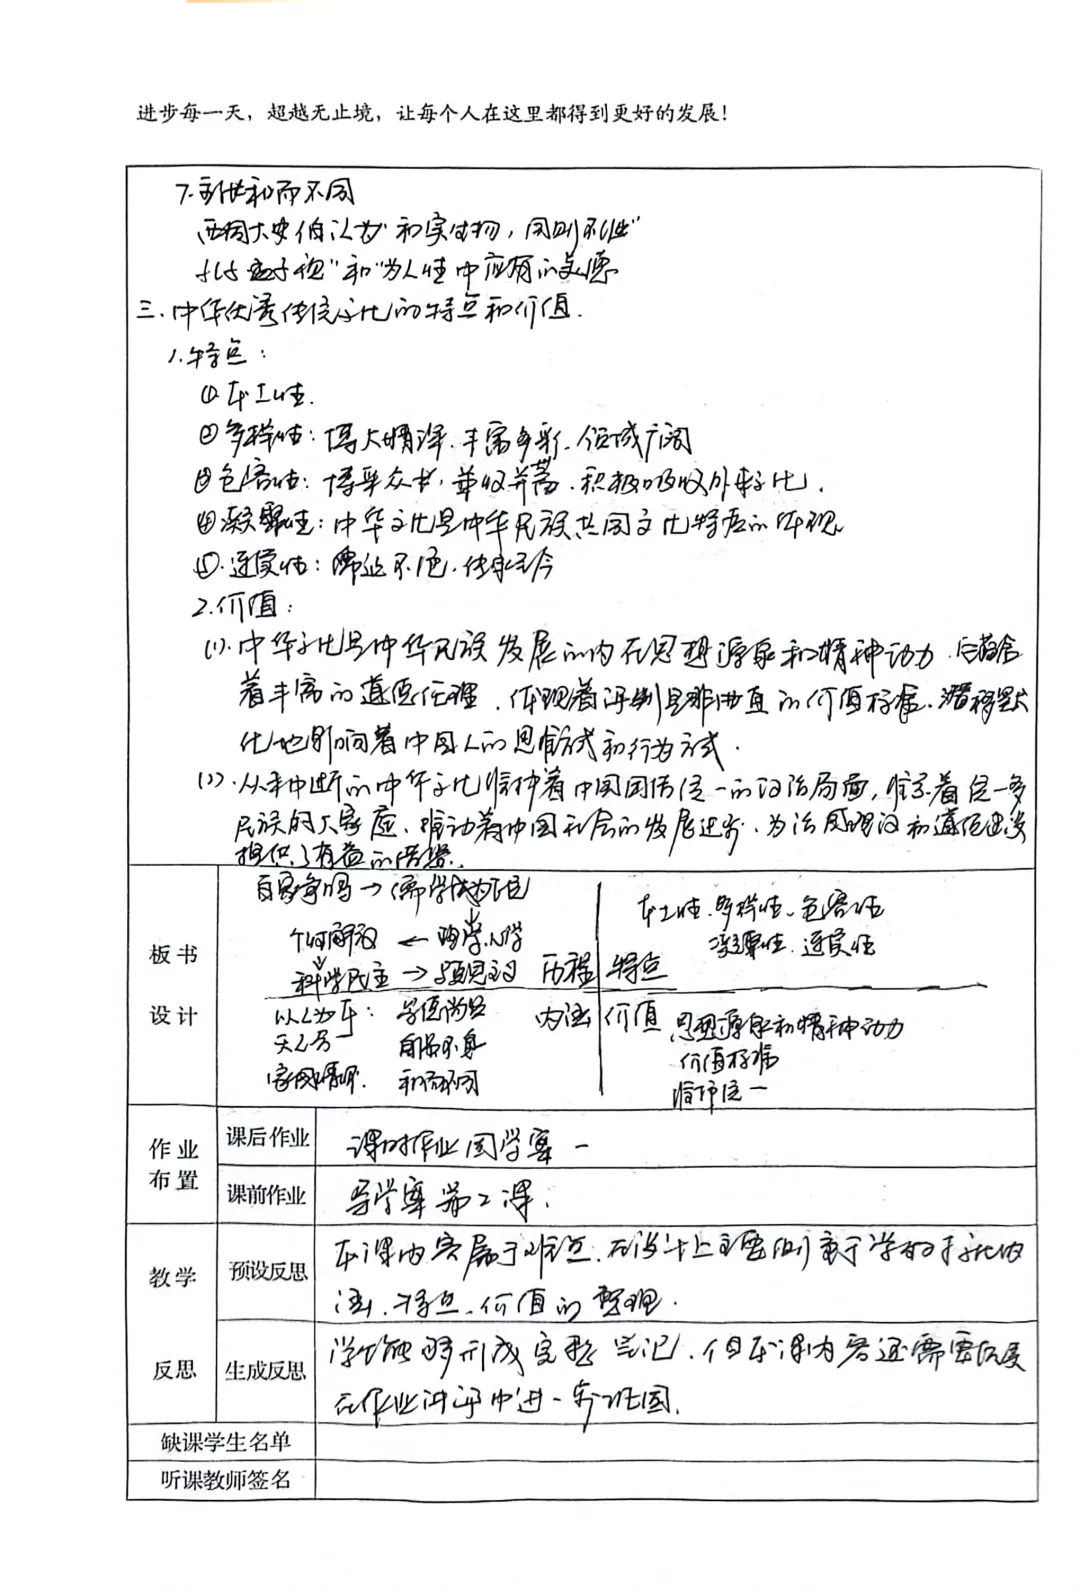 进步每一天，超越无止境，让每个人在这里都得到更好的发展！
7.主张和而不同
西周太史伯认为"和实生物，同则不继"
孔子孟子视"和"为人性中应有的美德
三.中华优秀传统文化的特点和价值.
1.特点：
①本土性.
②多样性：博大精深.丰富多彩.领域广阔
③包容性：博采众长，兼收并蓄.积极吸收外来文化.
④凝聚性：中华文化是中华民族共同文化特质的体现
⑤.连续性：绵延不绝.传承至今
2.价值：
(1).中华文化是中华民族发展的内在思想源泉和精神动力.它蕴含
着丰富的道德伦理.体现着评判是非曲直的价值标准.潜移默
化地影响着中国人的思维方式和行为方式.
(2).从未中断的中华文化维护着中国团结统一的政治局面，维系着统一多
民族的大家庭、推动着中国社会的发展进步.为治国理政和道德建设
提供了有益的借鉴.
板书
设计
百家争鸣→儒学成为正统
个性解放←理学.心学
科学民主→马列主义 历程 特点
本土性.多样性、包容性
凝聚性.连续性
以人为本：崇德尚贤 内涵 价值 思想源泉和精神动力
天人合一 自强不息 价值标准
家国情怀. 和而不同 维护统一
作业
布置
课后作业 课时作业 固学案一
课前作业 导学案第2课.
教学
反思
预设反思 本课内容属于难点.在设计上主要侧重于学生对文化内
涵.特点.价值的整理.
生成反思 学生能够形成完整笔记.但本课内容还需要反复
在作业评讲中进一步巩固.
缺课学生名单
听课教师签名